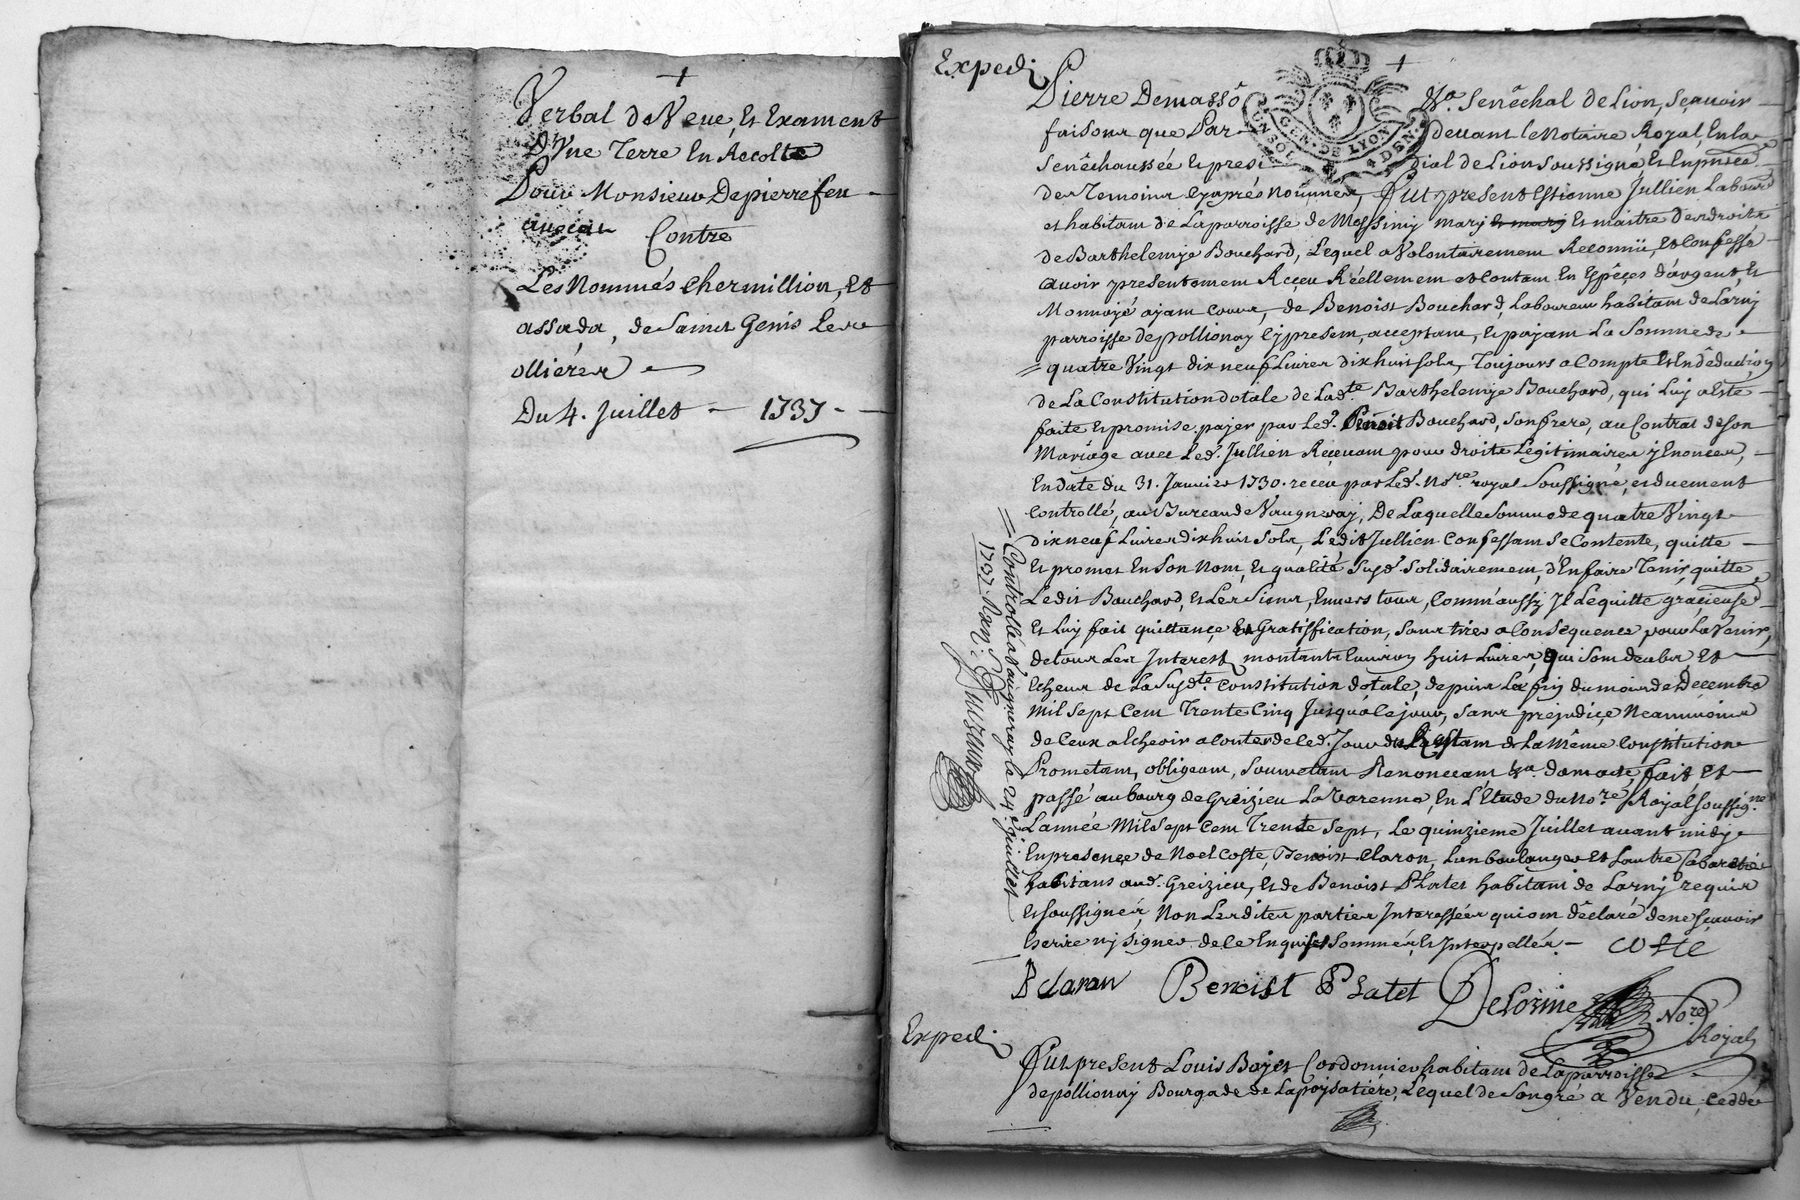 +
Verbal de Veüe, et Exament
D'Une Terre En Recolte
Pour Monsieur Depierrefeu
avocat
Contre
Les Nommés Chermillion, et
assada, de Saint Genis Les
ollières
Du 4. Juillet - 1737 -
+
Expedié
UN SOL GEN. DE LYON 4 DEN.
Pierre Demassô Sgr. Senêchal de Lion, Sçavoir
faisons que Par devant le Notaire, Royal, En la
Senêchaussée et presidial de Lion soussigné et En presence
des Temoins cy aprés Nommés, Fut present Estienne Jullien Laboureur
et habitant de La parroisse de Messimy mary et maitre des droits
de Barthelemye Bouchard, Lequel a Volontairement Reconnü, et Confessé
avoir presentement Reçeu Réellement et Contant En Espêçes d'argent, et
Monnoyé ayant Cours, de Benoist Bouchard, Laboureur habitant de Larny
parroisse de pollionay Cy present, acceptant, et payant La Somme de
quatre Vingt dix neuf Livres dix huit sols, Toujours a Compte et En deduction
de La Constitution dotale de Lad.te Barthelemye Bouchard, qui Luy a Esté
faite et promise payer par Led. Benoit Bouchard, Son frere, au Contrat de Son
Mariage avec Led. Jullien Reçevant pour droits Légitimaires y Enoncer,
En datte du 31. Janvier 1730. receu par Led. No.re royal Soussigné, et duement
Controllé, au Bureau de Vaugneray, De Laquelle Somme de quatre Vingt
dix neuf Livres dix huit Sols, Ledit Jullien Confessant Se Contente, quitte
et promet En Son Nom, et qualité Susd. Solidairement, d'En faire Tenir quitte
Ledit Bouchard, et Les Siens, Envers tous, Comm'aussy Il Le quitte gracieusem.t
et Luy fait quittance et Gratiffication, Sans tirer a Consequence pour La Venir,
de tous Les Interest montants Environ huit Livres, qui Sont deubs, et
Echeus de La Susd.te Constitution dotale, depuis La fin du mois de Decembre
Mil Sept Cent Trente Cinq Jusqu'a Ce jour, Sans prejudice Neanmoins
de Ceux a Echeoir a Conter de Ced. Jour du Restant de La Même Constitution
Prometant, obligeant, Soumetant Renoncant &a. dont acte, fait et
passé au bourg de Greizieu La Varenne, En L'Etude du No.re Royal Soussigné
L'année Mil Sept Cent Trente Sept, Le quinzieme Juillet avant midy
En presence de Noel Coste, Benoist Claron, L'un boulanger et L'autre Cabaretié
habitans aud. Greizieu, et de Benoist Platet habitant de Larny requis
et Soussignés, Non Lesdites parties Interessées qui ont dêclaré de ne Sçavoir
Escrire ny Signer de Ce Enquises Sommés et Interpellés - Coste
B Claron Benoist Platet Delorme No.re
Royal
Controllé a Vaugneray le 24. juillet
1737.
Expedié
Fut present Louis Bajet Cordonnier habitant de La parroisse
de pollionay Bourgade de La poysatiére, Lequel de Son gré a Vendu, Cedde